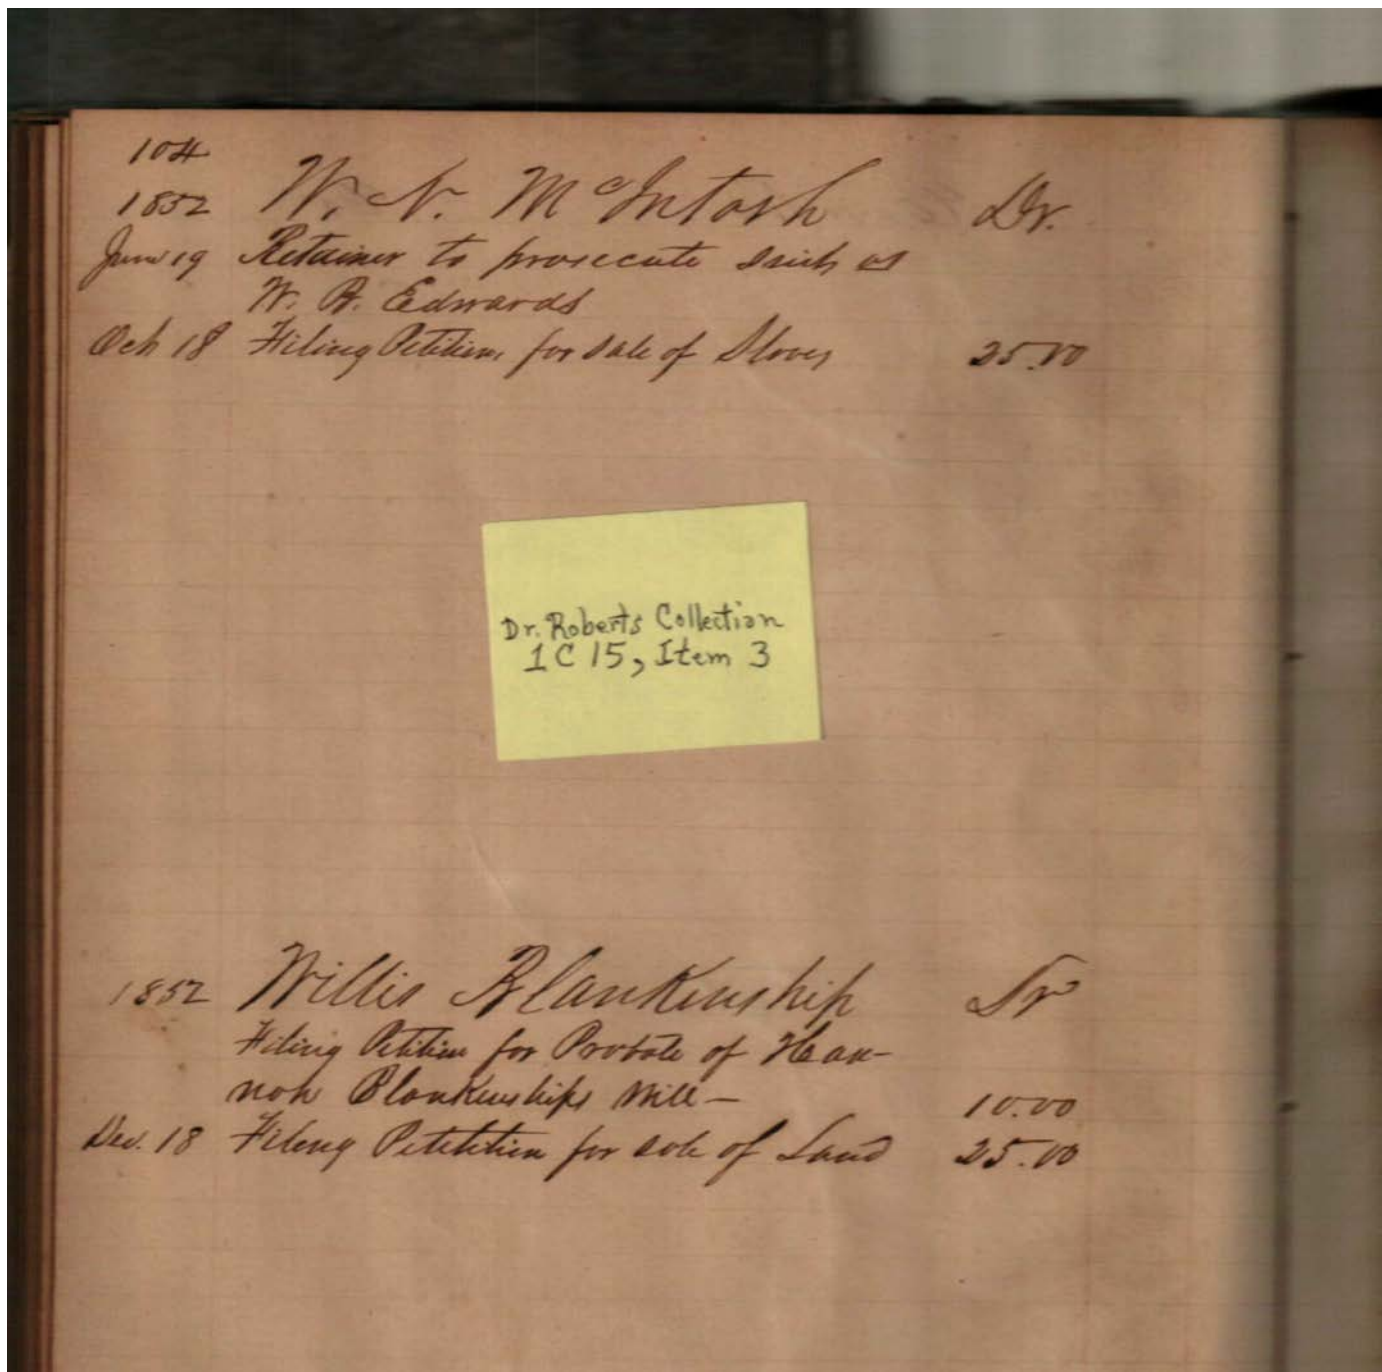 104
1852 W. N. McIntosh Dr.
June 19 Retainer to prosecute
W. A. Edwards
Oct 18 Filing Petition for sale of Slaves 25.00
Dr. Roberts Collection
1C15, Item 3
1852 Willis Blankenship Dr
Filing Petition for Probate of Han-
nah Blankenships Will—
10.00
Dec. 18 Filing Petitition for sale of Land 25.00